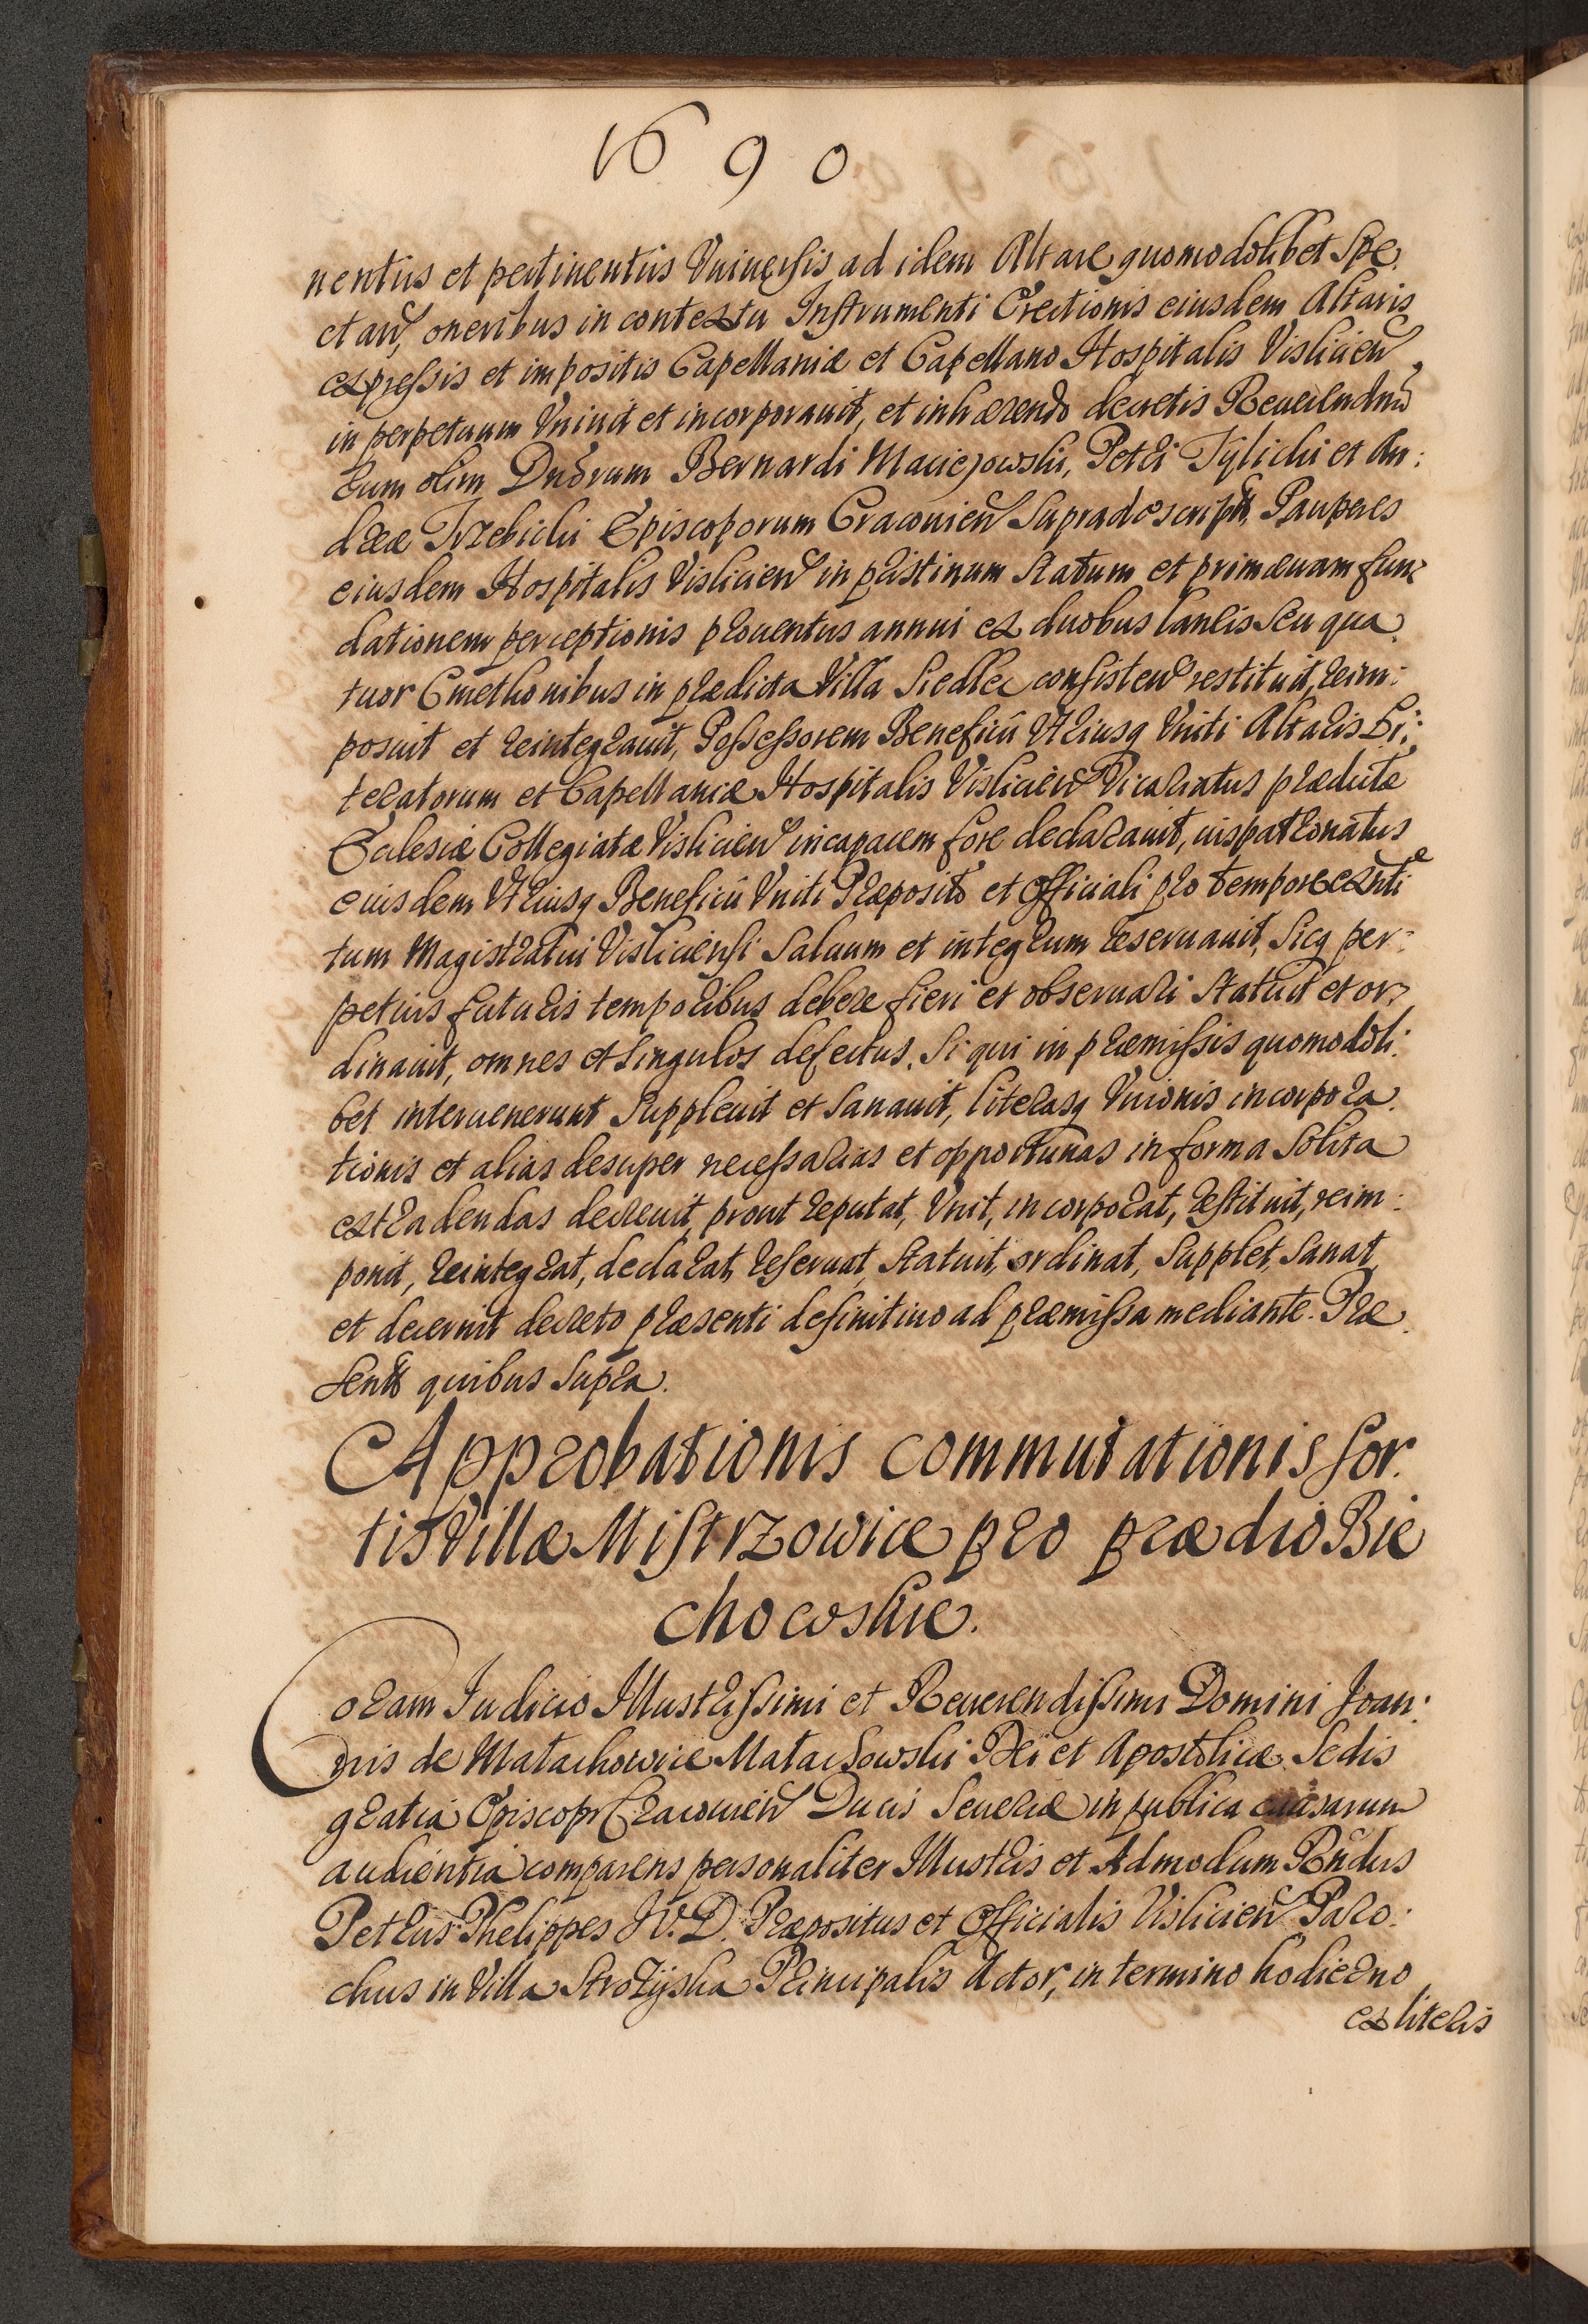 1690
nentiis et pertinentiis Vniuersis ad idem Altare quomodolibet Spe.
ctan, oneribus in contextu Instrumenti Erectionis eiusdem Altaris
expressis et impositis Capellaniæ et Capellano Hospitalis Vislicien
in perpetuum Vniuit et incorporauit, et inhærendo decretis Reuerendm̃
rum olim Dnorum Bernardi Maciejowski, Petri Tylicki et An:
dreæ Trzebicki Episcoporum Cracouien Supradescript, Pauperes
eiusdem Hospitalis Vislicien in pristinum Statum et primæuam fun:
dationem perceptionis prouentus annui ex duobus laneis Seu qua.
tuor Cmethonibus in prædicta Villa Siedlec consisten restituit, reim:
posuit et reintegrauit, Possessorem Beneficii Vtriusq Vniti Altaris Li:
teratorum et Capellaniæ Hospitalis Vislicien Vicariatus prædictæ
Ecclesiæ Collegiatæ Vislicien incapacem fore declarauit, iuspatronatus
eiusdem Vtriusq Beneficii Vniti Præposito et Officiali pro tempore exnti
tum Magistratui Visliciensi Saluum et integrum reseruauit, Sicq per:
petuis futuris temporibus debere fieri et obseruari Statuit et or:
dinauit, omnes et Singulos defectus, Si qui in præmissis quomodoli:
bet interuenerunt Suppleuit et Sanauit, literasq Vnionis incorpora.
tionis et alias desuper necessarias et opportunas in forma Solita
extradendas decreuit, prout reputat, Vnit, incorporat, restituit, reim:
ponit, reintegrat, declarat, reseruat, Statuit, ordinat, Supplet, Sanat,
et decernit decreto præsenti definitiuo ad præmissa mediante. Præ.
sentt quibus Supra.
Approbationis commutationis sor.
tis Villæ Mistrzowice pro prædio Bie
chowskie.
Coram Iudicio Illustrissimi et Reuerendissimi Domini Joan:
nis de Małachowice Małachowski Dei et Apostolicæ Sedis
gratia Episcopi Cracouien Ducis Seueriæ in publica causarum
audientia comparens personaliter Illustris et Admodum Rñdus
Petrus Phelippes J.V.D. Præpositus et Officialis Vislicien Paro:
chus in Villa Strożyska Principalis Actor, in termino hodierno
ex literis